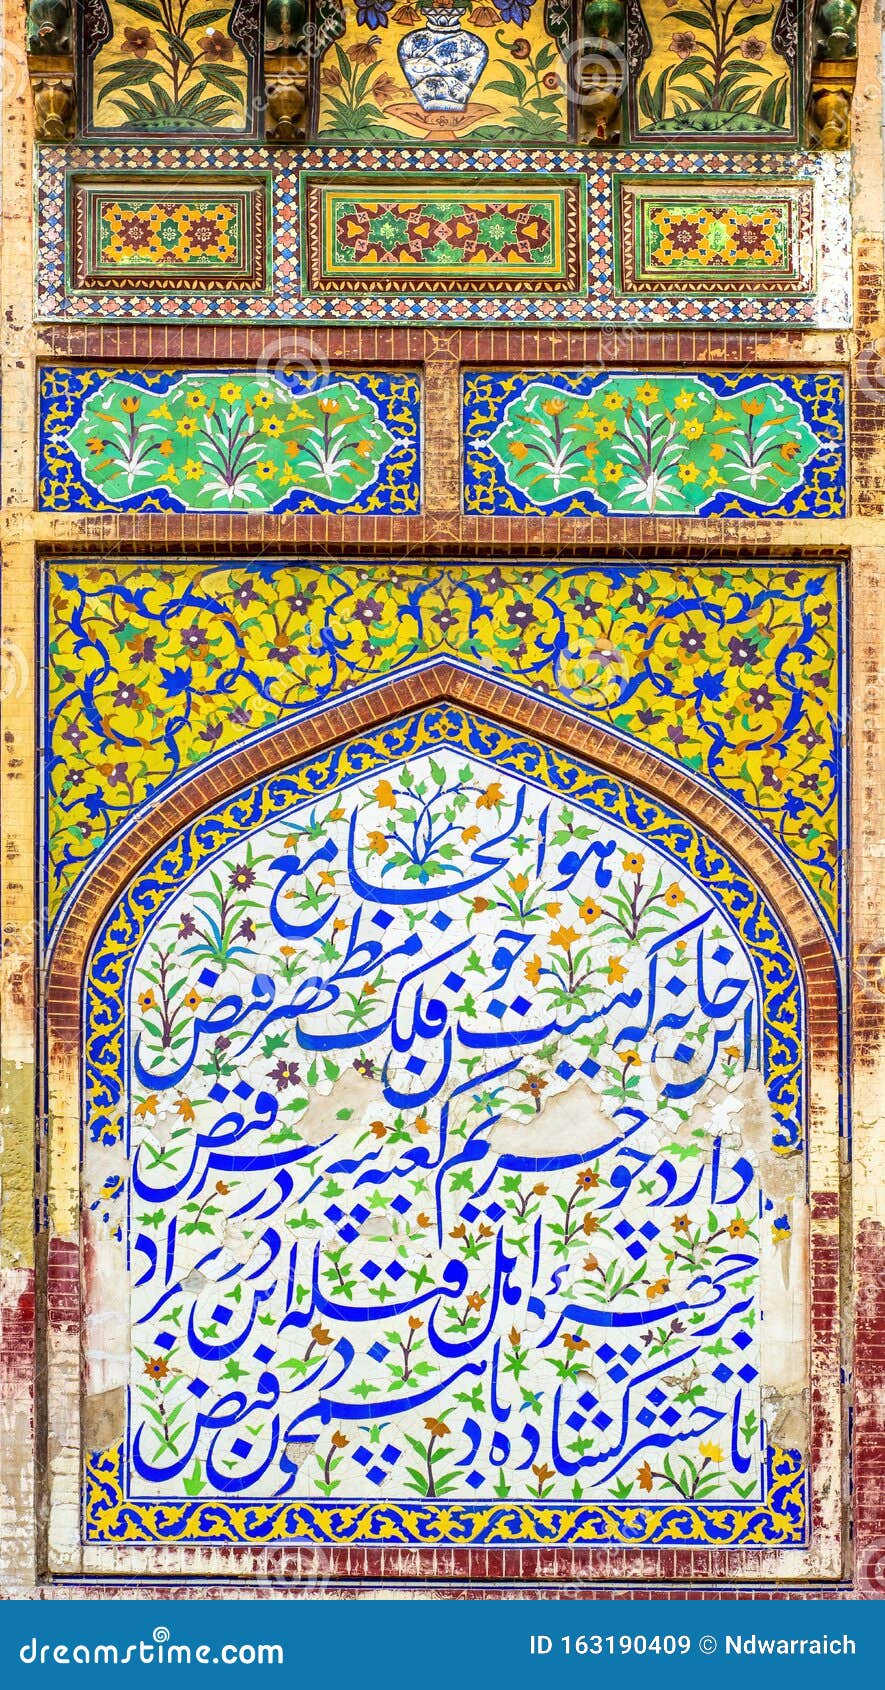 هو الجامع
این خانه که هست چون فلک مظهر فیض
دارد چو حریم کعبه سر در سر فیض
بر چهرهٔ اهل قبله این در بمراد
تا حشر کشاده باد همچون در فیض
dreamstime.com
ID 163190409 © Ndwarraich